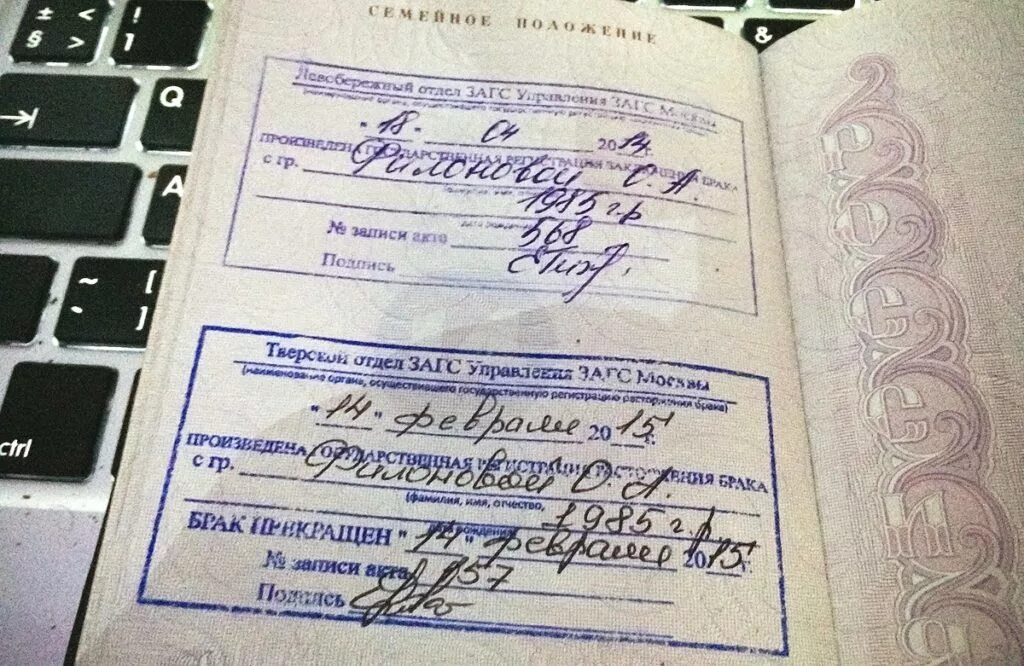 ± <
§ >
!
1
&
Q
A
~ [
` ]
ctrl
СЕМЕЙНОЕ ПОЛОЖЕНИЕ
Левобережный отдел ЗАГС Управления ЗАГС Москвы
"18" 04 2014г.
ПРОИЗВЕДЕНА ГОСУДАРСТВЕННАЯ РЕГИСТРАЦИЯ ЗАКЛЮЧЕНИЯ БРАКА
с гр. Филоновой О.А.
1985 гр
№ записи акта 568
Подпись
Тверской отдел ЗАГС Управления ЗАГС Москвы
(наименование органа, осуществившего государственную регистрацию расторжения брака)
"14" февраля 2015г.
ПРОИЗВЕДЕНА ГОСУДАРСТВЕННАЯ РЕГИСТРАЦИЯ РАСТОРЖЕНИЯ БРАКА
с гр. Филоновой О.А.
(фамилия, имя, отчество,
1985 гр
дата рождения)
БРАК ПРЕКРАЩЕН "14" февраля 2015г.
№ записи акта 157
Подпись
РОССИЯ